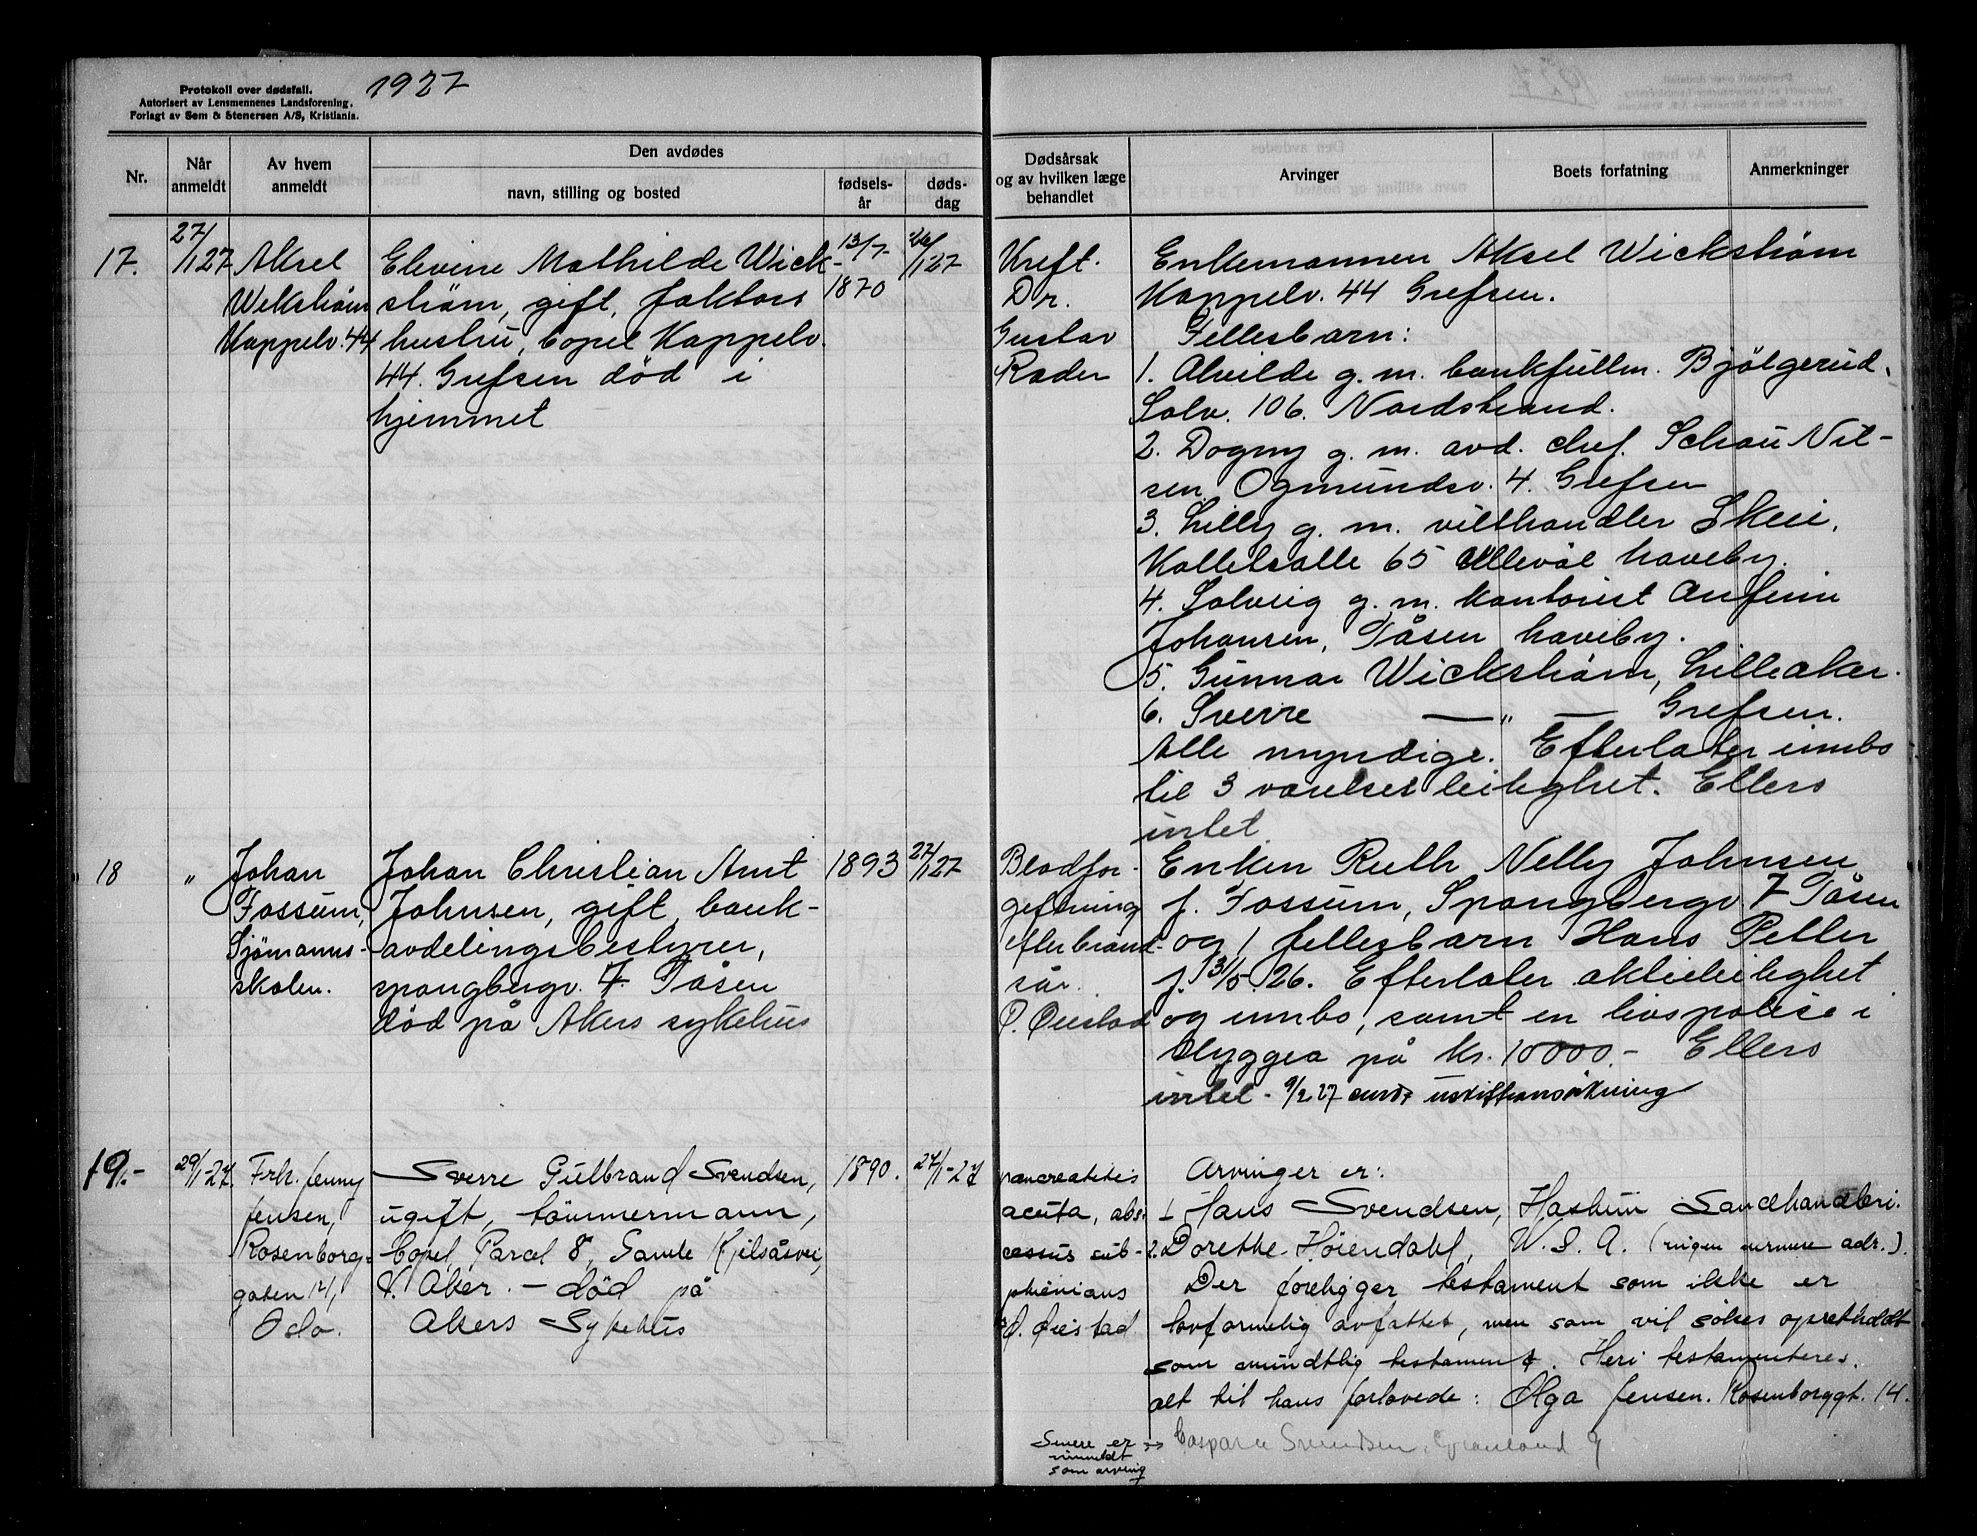 Protokoll over dødsfall.
Autorisert av Lensmennenes Landsforening.
Forlagt av Sem & Stenersen A/S, Kristiania.
1927
Nr.
Når anmeldt
Av hvem anmeldt
Den avdødes
navn, stilling og bosted
fødsels-år
døds-dag
Dødsårsak og av hvilken læge behandlet
Arvinger
Boets forfatning
Anmerkninger
17.
27/1 27
Aksel
Wickstrøm
Kappelv. 44
Elevine Mathilde Wick-
strøm, gift, faktors
hustru, bopel Kappelv.
44. Grefsen død i
hjemmet
13/7-
1870
26/1 27
Kreft.
Dr.
Gustav
Rader
Enkemannen Aksel Wickstrøm
Kappelv. 44 Grefsen.
Fellesbarn:
1. Alvilde g. m. bankfullm. Bjölgerud,
Solv. 106. Nordstrand.
2. Dagny g. m. avd. chef. Schau Nil-
sen Ogmundsv. 4. Grefsen
3. Lilly g. m. vilthandler Skei,
Kolletsalle 65 Ullevål haveby.
4. Solveig g. m. kontorist Anfinn
Johansen, Tåsen haveby.
5. Gunnar Wickstrøm, Lilleaker.
6. Sverre — " — Grefsen.
Alle myndige. Efterlater innbo
til 3 værelses leilighet. Ellers
intet
18
"
Johan
Fossum,
Sjömanns-
skolen.
Johan Christian Arnt
Johnsen, gift, bank-
avdelingsbestyrer,
spangbergv. 7. Tåsen
død på Akers sykehus
1893
27/1 27
Blodfor-
giftning
efter brand-
sår.
O. Øiestad
Enken Ruth Nelly Johnsen
f. Fossum, Spangbergv 7 Tåsen
og 1 fellesbarn Hans Petter
f. 31/5. 26. Efterlater aktieleilighet
og innbo, samt en livspolise i
Hyggea på kr. 10000.- Ellers
intet. 9/2 27 sendt uskifteansökning
19.-
29/1-27.
Frk. Jenny
Jensen,
Rosenborg-
gaten 14,
Oslo.
Sverre Gulbrand Svendsen,
ugift, tömmermann,
bopel Parcel 8, Samle Kjelsåsvei,
V. Aker. — död på
Akers Sykehus
1890.
27/1-27
pancreatitis
acuta, abs-
cessus sub-
phrenicus
O. Øiestad
Arvinger er:
1. Hans Svendsen, Hastun Landhandleri.
2. Dorethe Höiendahl, U.S.A. (ingen nermere adr.).
Der foreligger testament som ikke er
lovformelig avfattet, men som vil sökes opretholdt
som mundtlig testament. Heri testamenteres
alt til hans forlovede: Olga Jensen. Rosenborggt. 14.
Sverre er
innmeldt
som arving
Caspara Svendsen, Grønland 9